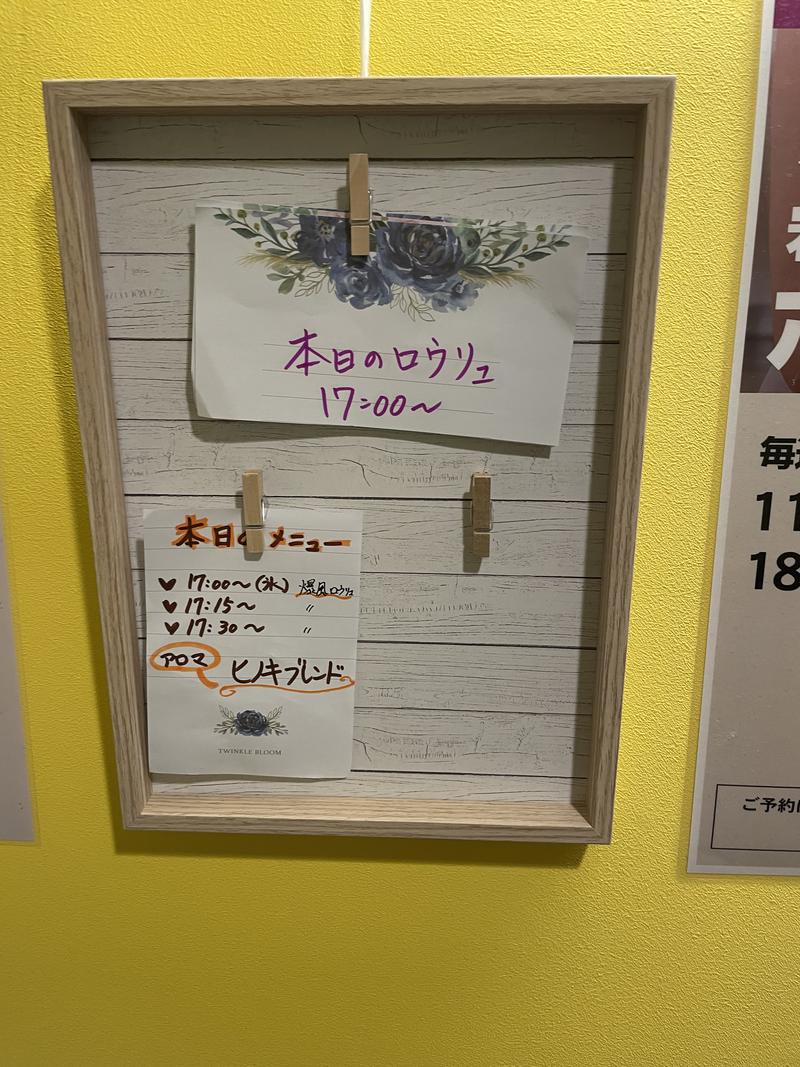 本日のロウリュ
17:00〜
本日のメニュー
♥ 17:00〜(氷) 爆風ロウリュ
♥ 17:15〜 〃
♥ 17:30〜 〃
アロマ ヒノキブレンド
TWINKLE BLOOM
毎
11
18
ご予約